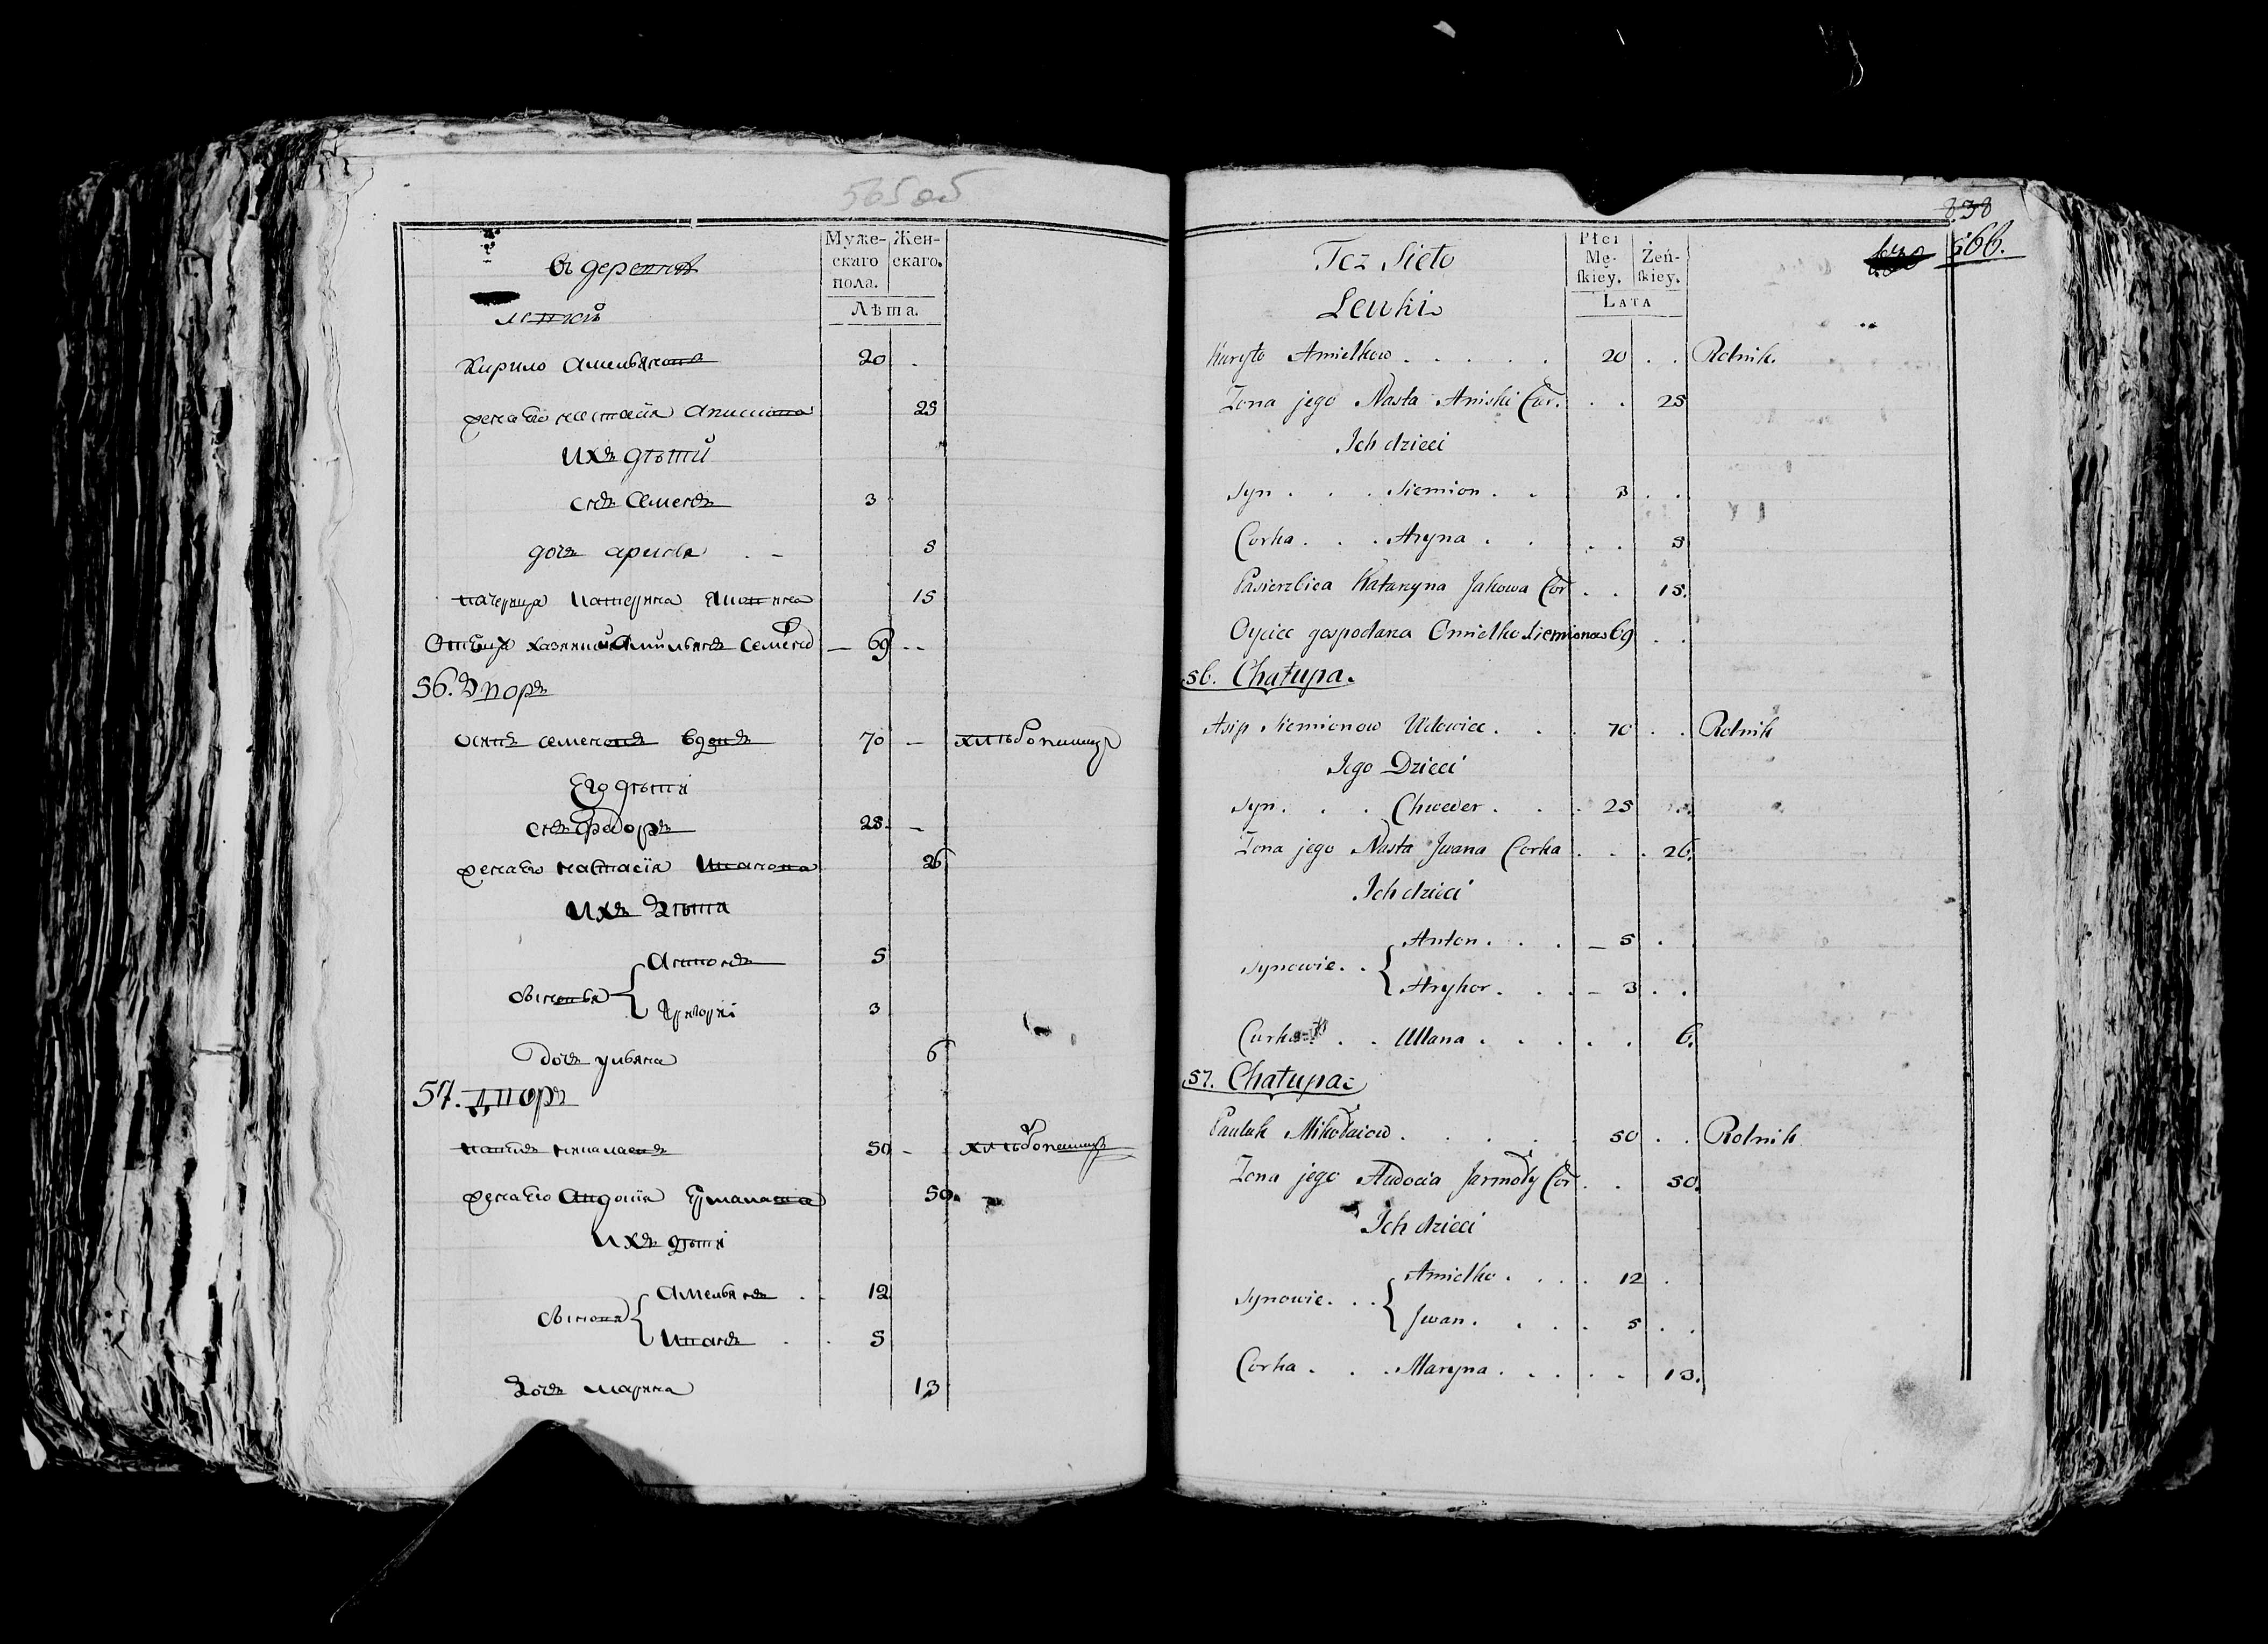 565 об
Муже-
скаго
пола.
Жен-
скаго.
Лѣта.
въ деревни
Кирило Амельяновъ 20 .
жена его настасія Анисиова 25
Ихъ дѣти
снъ Семенъ 3
дочь арина . - 5
падчерица Катерина 15
Отецъ хазяина Амильянъ Семено — 69 --
56. Дворъ
Осипъ семеновъ вдовъ 70 — хлѣбопашецъ
Его дѣти
снъ Федоръ 25. —
жена его настасія Иванова 26
Ихъ дѣти
сыновья { Антонъ 5
Григорій 3
дочь ульяна 6
57. Дворъ
павелъ николаевъ 50 - хлѣбопашецъ
жена его Авдотія 50.
Ихъ дѣти
сыновя { амельянъ . . 12
Иванъ . . 5
дочь марина 13
838
566.
Płci
Mę-
skiey.
Żeń-
skiey.
Lata
Toż Sioło
Leuki
Kuryło Amielkow . . . . . 20 . . Rolnik.
Zona jego Nasta Aniski Cór. . . 25
Ich dzieci
Syn . . . Siemion . . 3 . .
Corka . . . Aryna . . . . 5
Pasierzbica Katarzyna Jakowa Cor . . 15.
Oyciec gospodarza Omielko Siemionow 69 . .
56. Chałupa.
Asip Siemionow Wdowiec . . . 70 . . Rolnik
Jego Dzieci
Syn . . . Chweder . . . 25
Zona jego Nasta Jwana Corka . . . 26.
Ich dzieci
Synowie . . { Anton . . . — 5 .
Hryhor . . . — 3 . .
Curka . . Ullana . . . . . 6.
57. Chałupa.
Pauluk Mikołaiow . . . . . 50 . . Rolnik
Zona jego Audocia Jarmoły Cor . . 50.
Ich dzieci
Synowie . . . { Amielko . . . . 12 .
Jwan . . . . 5 . .
Corka . . . Maryna . . . . . 13.